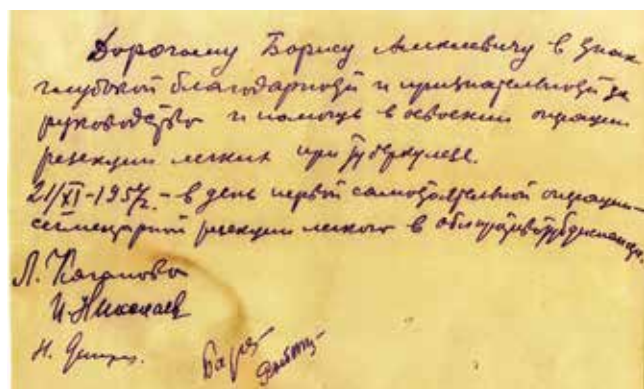 Дорогому Борису в знак
глубокой благодарности и признательности за
руководство и помощь в освоении операции
резекции легких при туберкулезе.
21/XI-1957г. - в день первой самостоятельной операции -
сегментарной резекции легкого в облпротивотубдиспансере.
Л. Каганова
И. Николаев
Н.